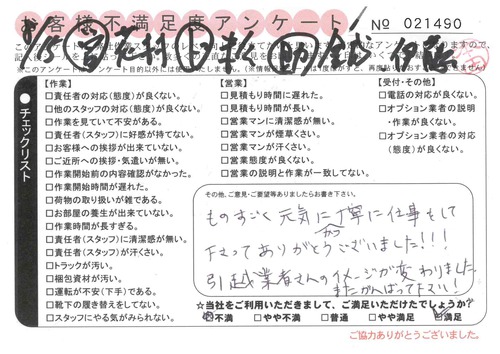 お客様不満足度アンケート
№ 021490
8/15
チェックリスト
【作業】
□責任者の対応(態度)が良くない。
□他のスタッフの対応(態度)が良くない。
□作業を見ていて不安がある。
□責任者(スタッフ)に好感が持てない。
□お客様への挨拶が出来ていない。
□ご近所への挨拶・気遣いが無い。
□作業開始前の内容確認がなかった。
□作業開始時間が遅れた。
□荷物の取り扱いが雑である。
□お部屋の養生が出来ていない。
□作業時間が長すぎる。
□責任者(スタッフ)に清潔感が無い。
□責任者(スタッフ)が汗くさい。
□トラックが汚い。
□梱包資材が汚い。
□運転が不安(下手)である。
□靴下の履き替えをしてない。
□スタッフにやる気がみられない。
【営業】
□見積もり時間に遅れた。
□見積もり時間が長い。
□営業マンに清潔感が無い。
□営業マンが煙草くさい。
□営業マンが汗くさい。
□営業態度が良くない。
□営業の説明と作業が一致してない。
【受付・その他】
□電話の対応が良くない。
□オプション業者の説明
・作業が良くない。
□オプション業者の対応
(態度)が良くない。
その他、ご意見・ご要望等ありましたらお書き下さい。
ものすごく元気に丁寧に仕事をして
下さってありがとうございました!!!
引越業者さんのイメージが変わりました。
またがんばって下さい!
☆当社をご利用いただきまして、ご満足いただけたでしょうか?
不満 □やや不満 □普通 □やや満足 ☑満足
ご協力ありがとうございました。